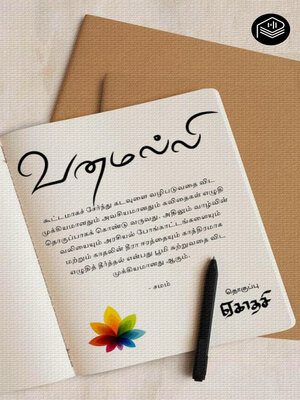 வனமல்லி
கூட்டமாகச் சேர்ந்து கடவுளை வழிபடுவதை விட
முக்கியமானதும் அவசியமானதும் கவிதைகள் எழுதி
தொகுப்பாகக் கொண்டு வருவது. அதிலும் வாழ்வின்
வலியையும் அரசியல் போங்காட்டங்களையும்
மற்றும் காதலின் தீரா ஈரத்தையும் காத்திரமாக
எழுதித் தீர்த்தல் என்பது பூமி சுற்றுவதை விட
முக்கியமானது ஆகும்.
- சமம்
தொகுப்பு
ஏகாதசி